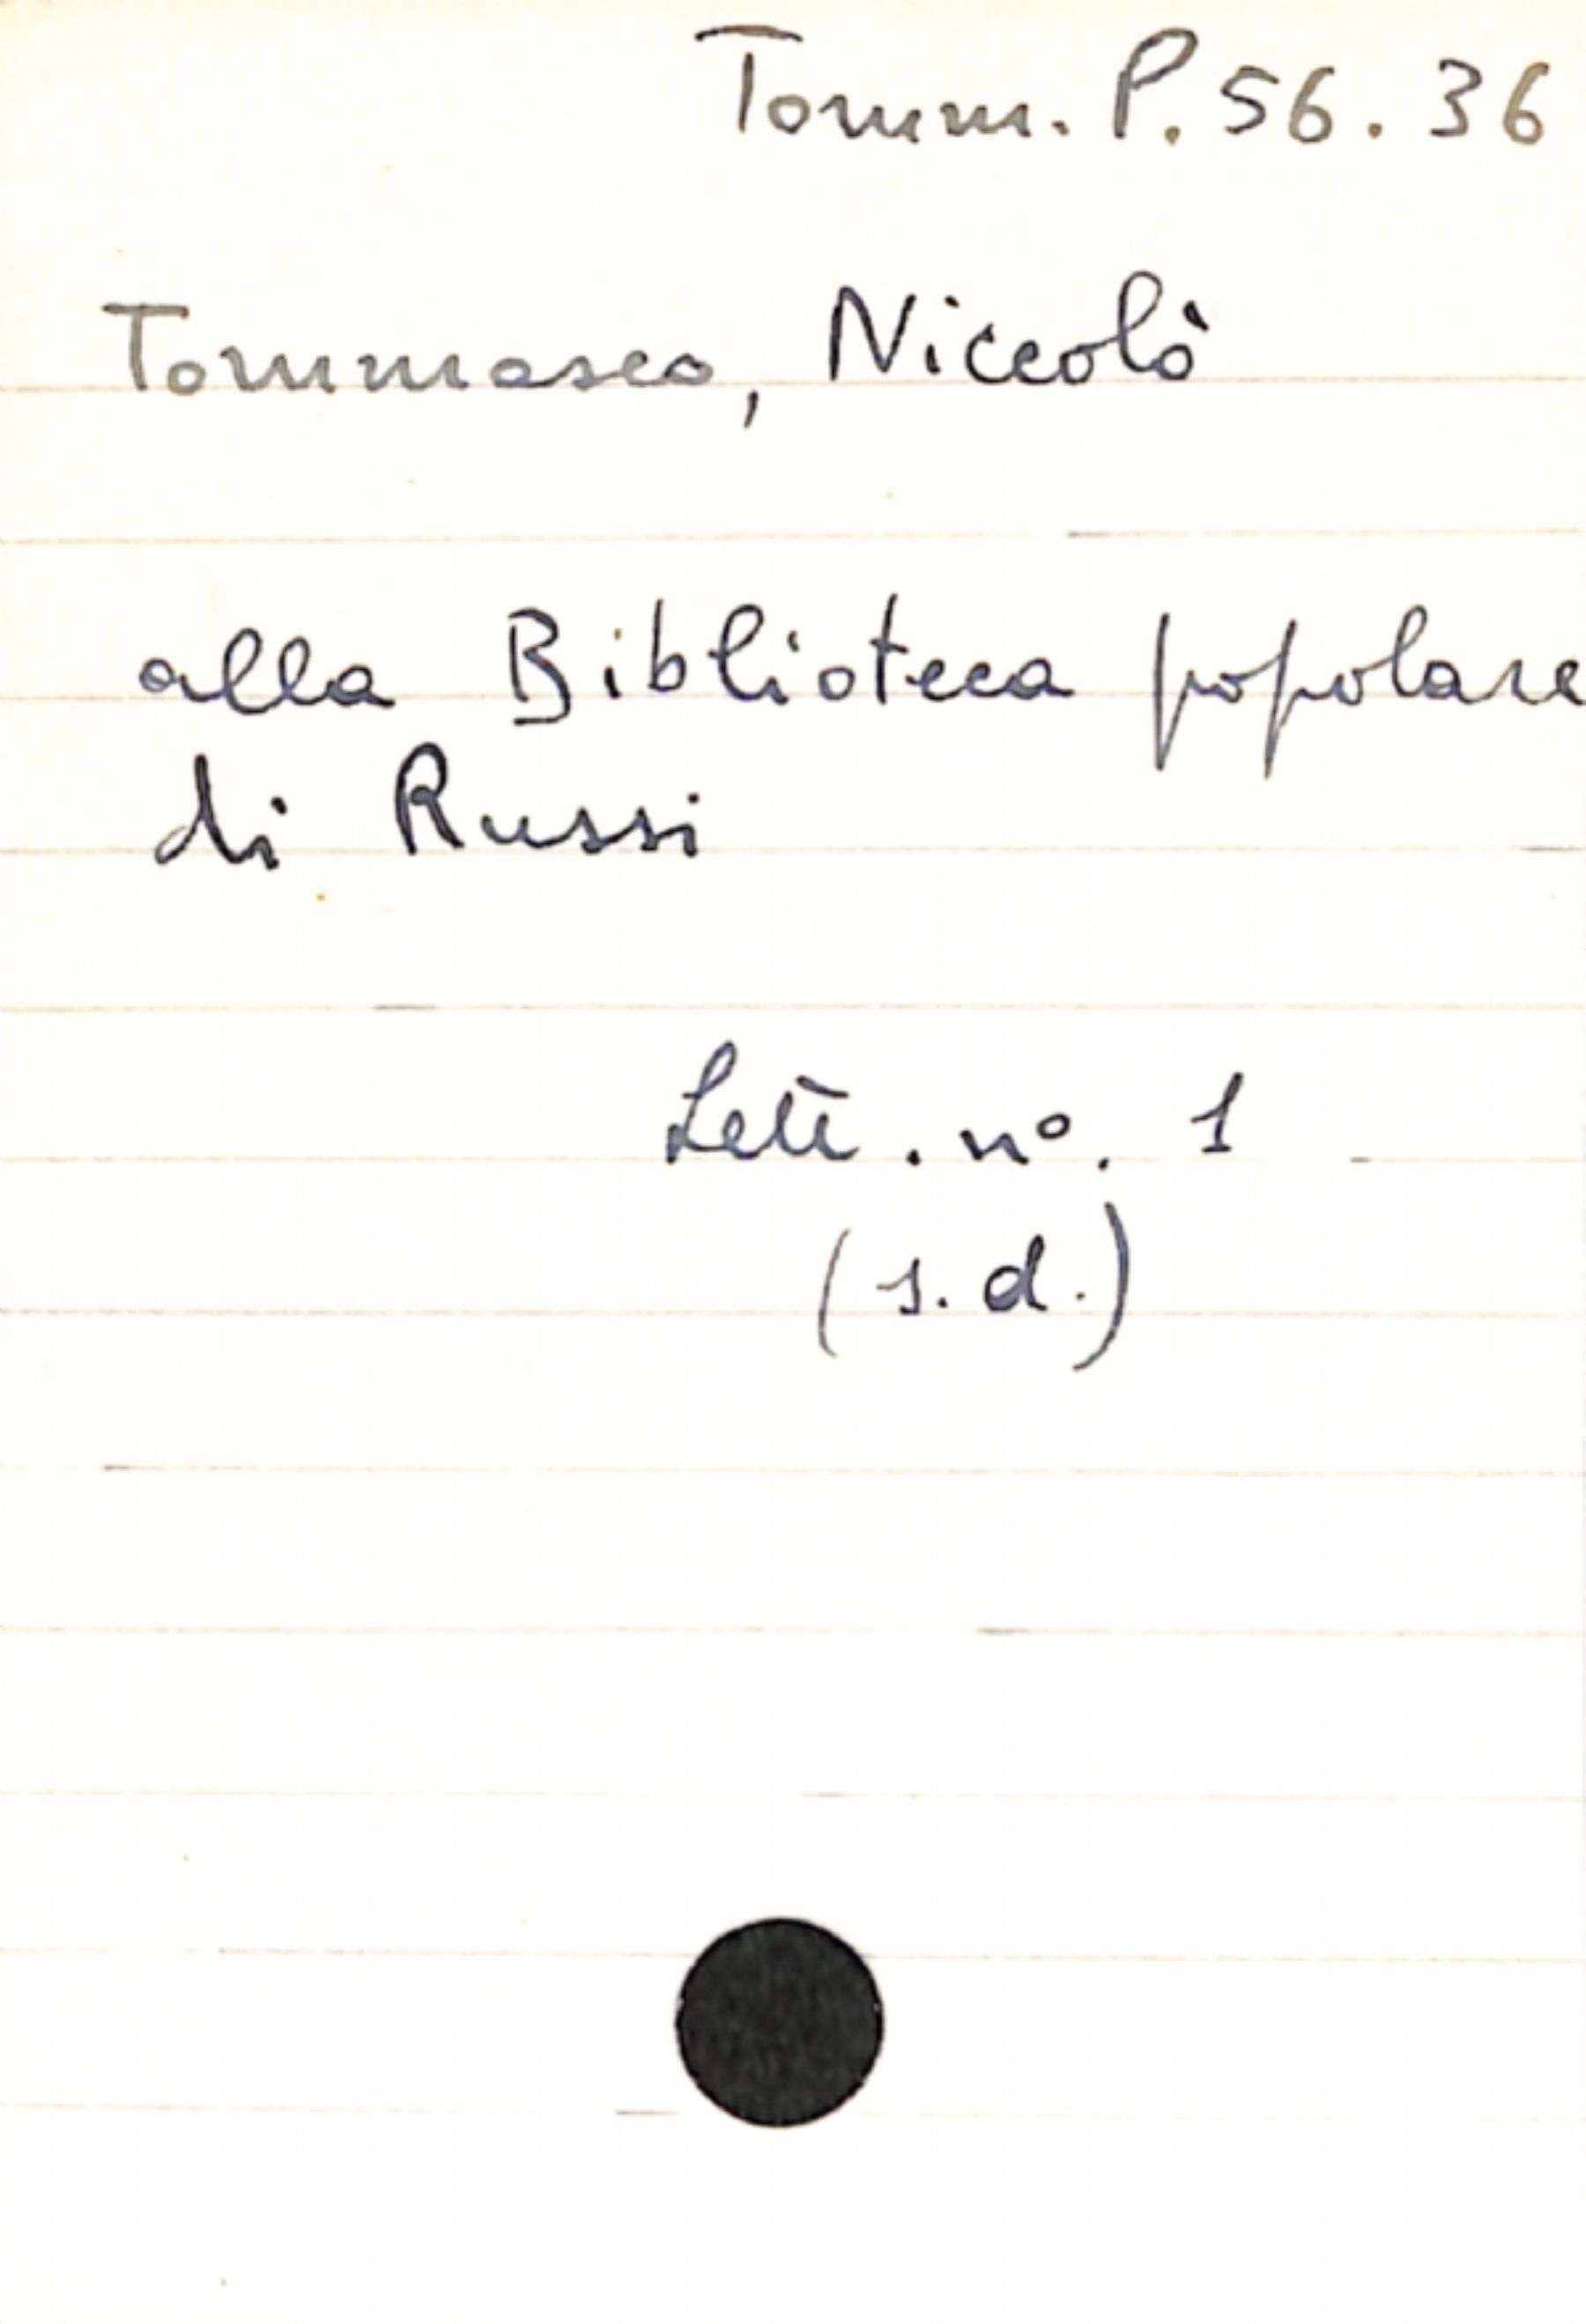 Tomm. P. 56. 36
Tommaseo, Niccolò
alla Biblioteca popolare
di Russi
Lett. n°. 1
(s. d.)